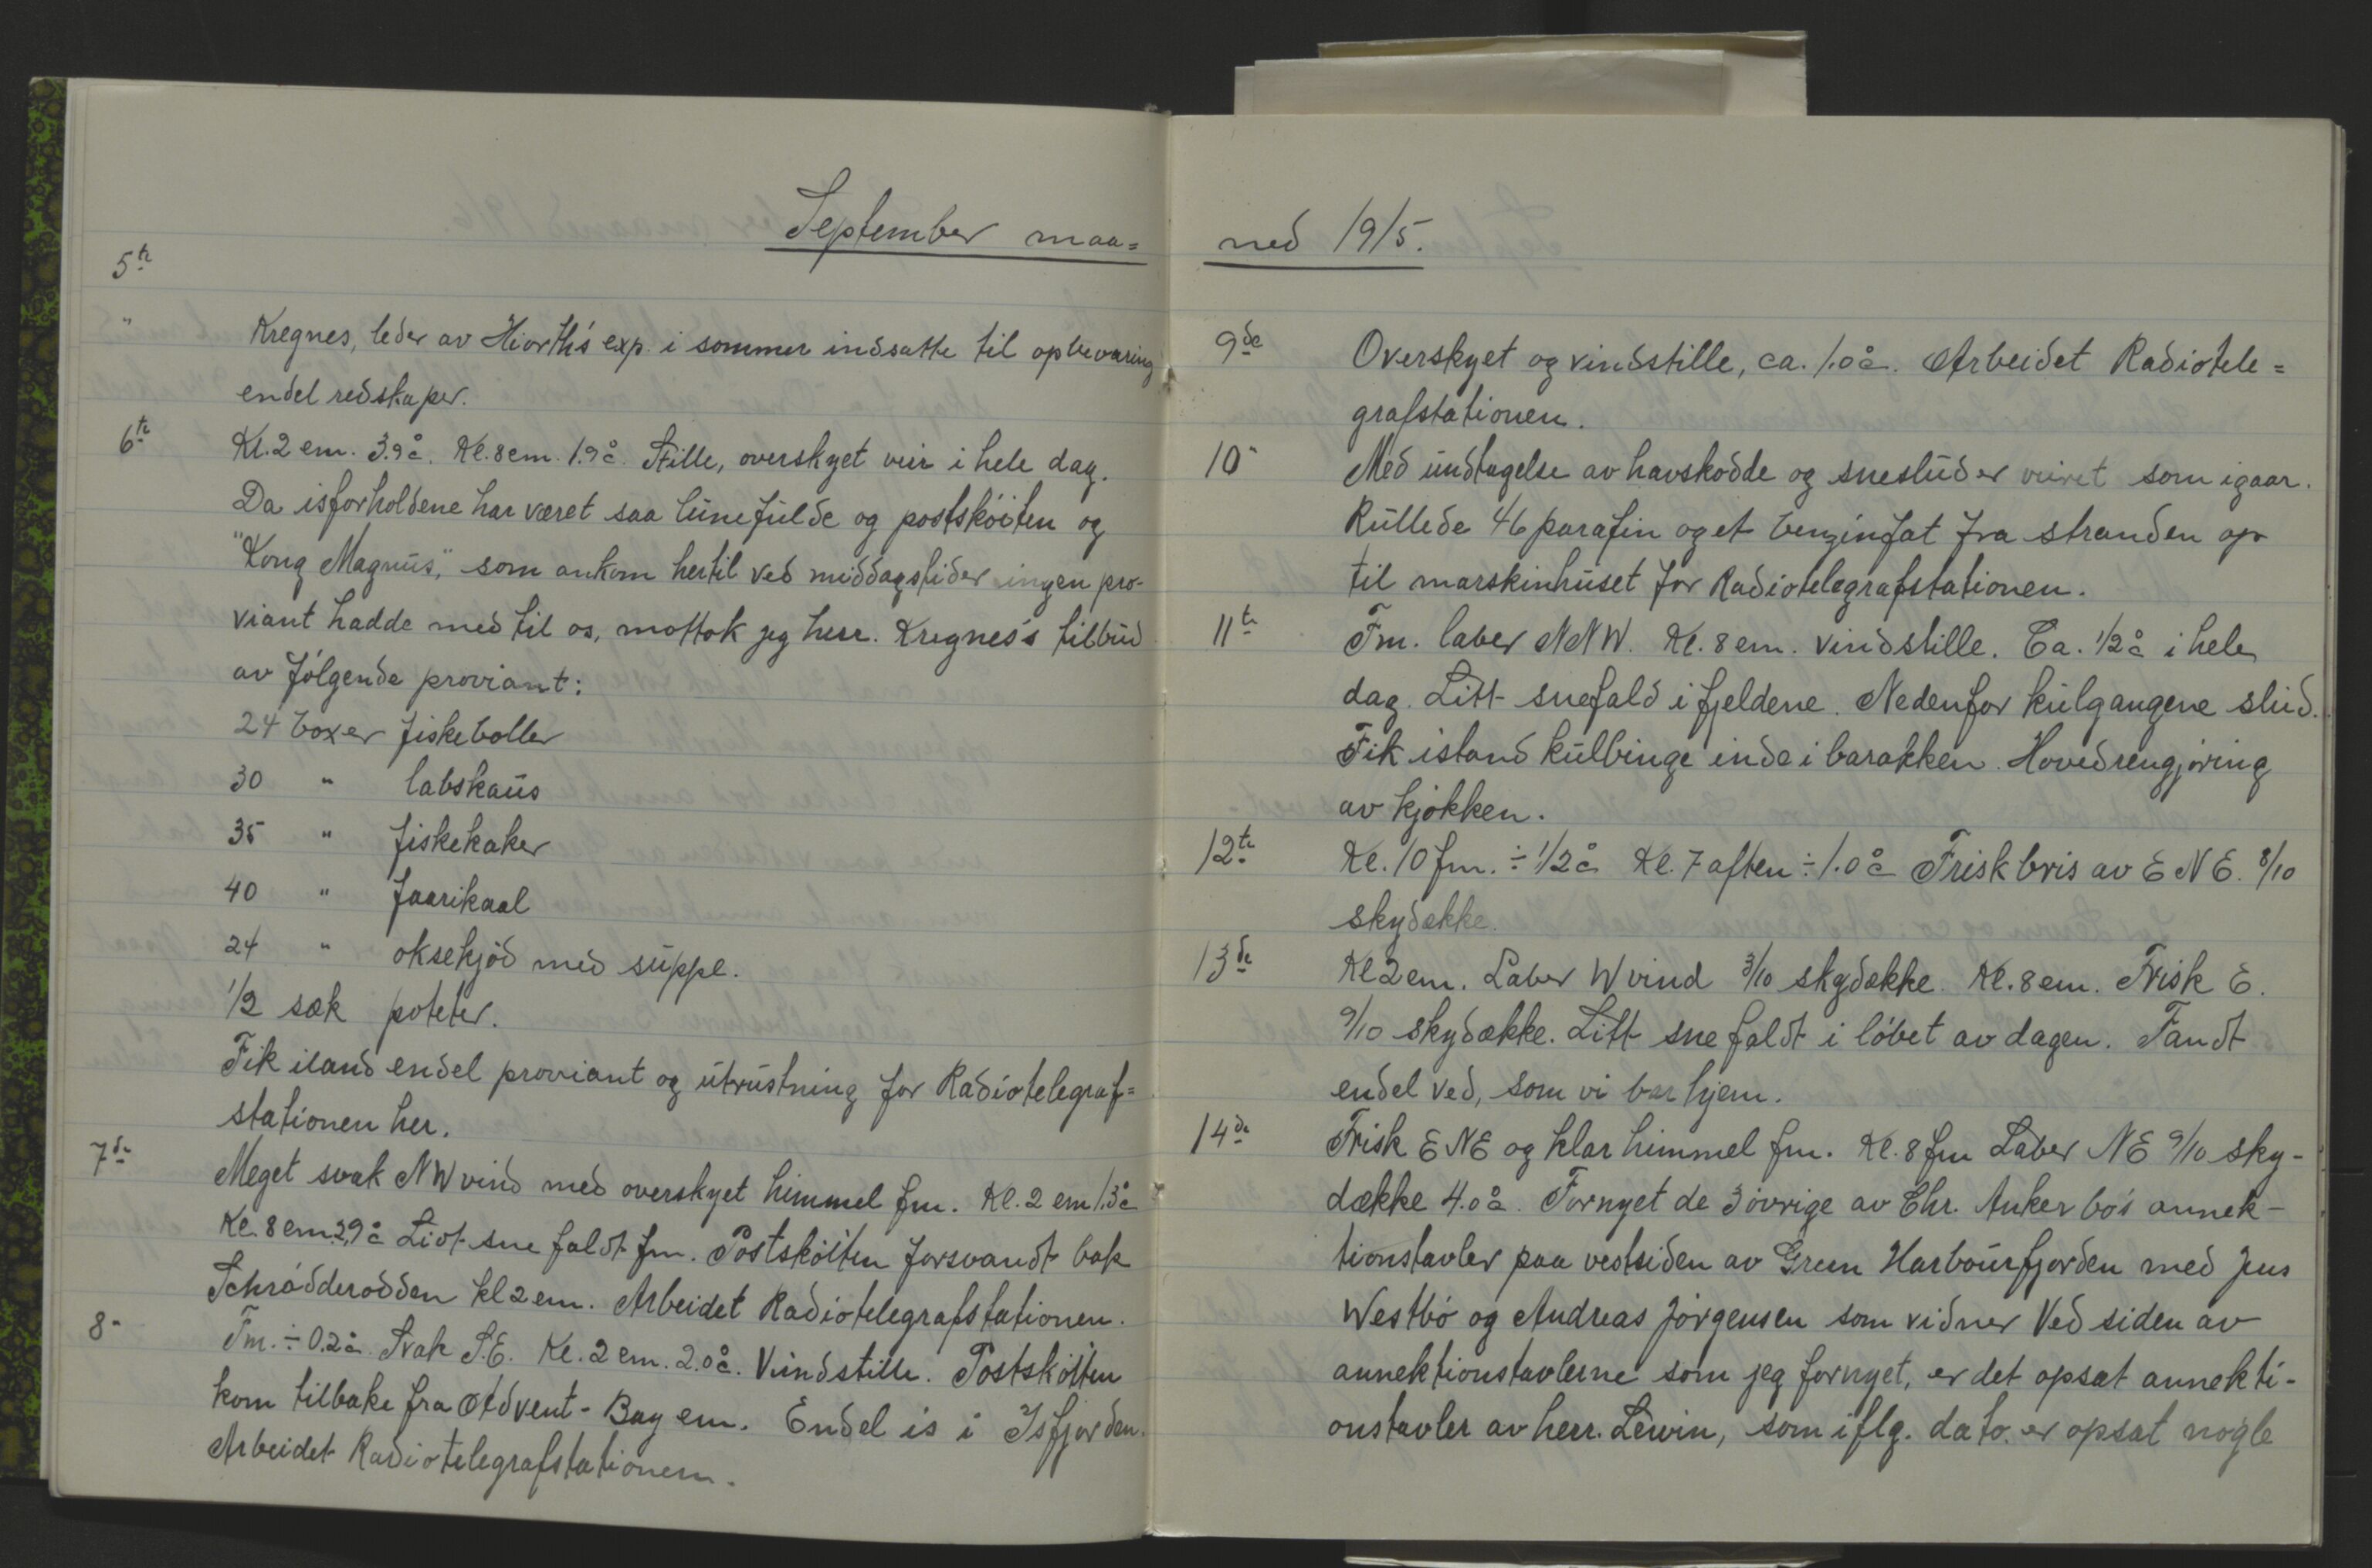 September maa=
5te
" Kregnes, leder av Hiorth's exp. i sommer indsatte til opbevaring
endel redskaper.
6te Kl. 2 em. 3.9°c. Kl. 8 em. 1.9°c. Stille, overskyet veir i hele dag.
Da isforholdene har været saa lunefulde og postskøiten og
"Kong Magnus", som ankom hertil ved middagstider ingen pro-
viant hadde med til os, mottok jeg herr. Kregnes's tilbud
av følgende proviant:
24 boxer fiskeboller
30 " labskaus
35 " fiskekaker
40 " faarikaal
24 " oksekjød med suppe.
1/2 sæk poteter.
Fik iland endel proviant og utrustning for Radiotelegraf=
stationen her.
7de Meget svak NW vind med overskyet himmel fm. Kl. 2 em 1.3°c
Kl. 8 em 2,9°c Lidt sne faldt fm. Postskøiten forsvandt bak
Schrødderodden kl 2 em. Arbeidet Radiotelegrafstationen.
8- Fm. ÷ 0.2°c. Svak S.E. Kl. 2 em. 2.0°c. Vindstille. Postskøiten
kom tilbake fra Advent-Bay em. Endel is i Isfjorden.
Arbeidet Radiotelegrafstationen.
ned 1915.
9de Overskyet og vindstille, ca. 1.0°c. Arbeidet Radiotele=
grafstationen.
10- Med undtagelse av havskodde og sneslud er veiret som igaar.
Rullede 46 parafin og et benzinfat fra stranden op
til marskinhuset for Radiotelegrafstationen.
11te Fm. laber NNW. Kl. 8 em. vindstille. Ca. 1/2°c i hele
dag. Litt snefald i fjeldene. Nedenfor kulgangene slud.
Fik istand kulbinge inde i barakken. Hovedrengjøring
av kjøkken.
12te Kl. 10 fm. ÷ 1/2°c Kl. 7 aften ÷ 1.0°c Frisk bris av ENE. 8/10
skydække.
13de Kl 2 em. Laber W vind 3/10 skydække. Kl. 8 em. Frisk E.
9/10 skydække. Litt sne faldt i løbet av dagen. Fandt
endel ved, som vi bar hjem.
14de Frisk ENE og klar himmel fm. Kl. 8 fm Laber NE 9/10 sky-
dække 4.0°c. Fornyet de 3 øvrige av Chr. Anker bo's annek-
tionstavler paa vestsiden av Green Harbourfjorden med Jens
Westbø og Andreas Jørgensen som vidner Ved siden av
annektionstavlerne som jeg fornyet, er det opsat annekti-
onstavler av herr. Lewin, som iflg. dato er opsat nogle